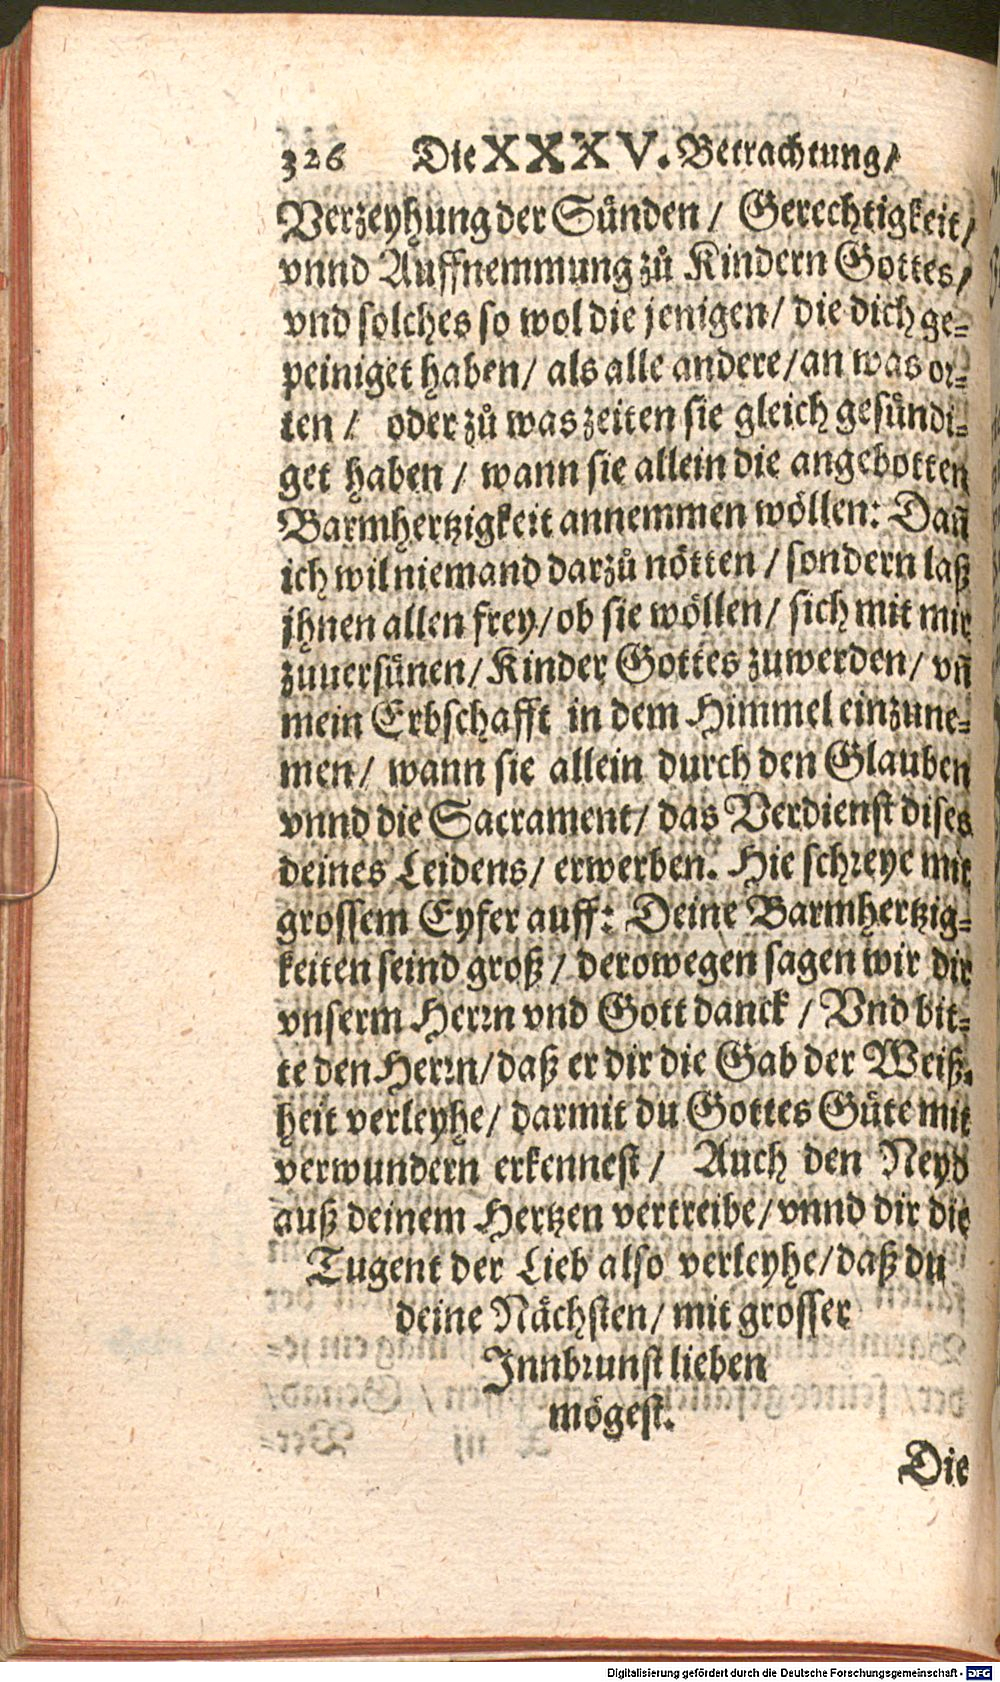 326 Die XXXV. Betrachtung/
Verzeyhung der Sünden / Gerechtigkeit/
vnnd Auffnemmung zů Kindern Gottes/
vnd solches so wol die jenigen/ die dich ge-
peiniget haben/ als alle andere/ an was or-
ten / oder zů was zeiten sie gleich gesündi-
get haben / wann sie allein die angebotten
Barmhertzigkeit annemmen wöllen: Dañ
ich wil niemand darzů nötten / sondern laß
jhnen allen frey/ ob sie wöllen/ sich mit mir
zuuersünen/ Kinder Gottes zuwerden/ vñ
mein Erbschafft in dem Himmel einzune-
men/ wann sie allein durch den Glauben
vnnd die Sacrament/ das Verdienst dises
deines Leidens/ erwerben. Hie schreye mit
grossem Eyfer auff: Deine Barmhertzig-
keiten seind groß / derowegen sagen wir dir
vnserm Herrn vnd Gott danck / Vnd bit-
te den Herrn/ daß er dir die Gab der Weiß-
heit verleyhe/ darmit du Gottes Güte mit
verwundern erkennest / Auch den Neyd
auß deinem Hertzen vertreibe/ vnnd dir die
Tugent der Lieb also verleyhe/ daß du
deine Nächsten/ mit grosser
Innbrunst lieben
mögest.
Die
Digitalisierung gefördert durch die Deutsche Forschungsgemeinschaft - DFG